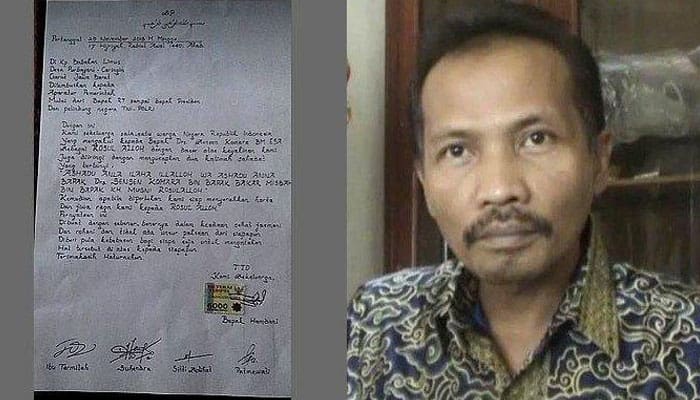 Pertanggal 25 November 2018 M Minggu
17 Hijriyah, Rabiul Awal 1440. Allah
Di Kp. Babakan Limus
Desa Purbayani - Caringin
Garut Jawa Barat
Ditembuskan kepada
Aparatur Pemerintah
Mulai dari Bapak RT sampai Bapak Presiden
Dan pelindung negara TNI-POLRI
Dengan ini
Kami sekeluarga salah satu warga Negara Republik Indonesia
Yang mengakui kepada Bapak Drs Sensen Komara BM ESA
Sebagai ROSUL ALLOH dengan dasar atas keyakinan kami
Juga diiringi dengan mengucapkan dua kalimah sahadat
Yang berbunyi
"ASHADU ANLA ILAHA ILLALLOH WA ASHADU ANNA
BAPAK Drs SENSEN KOMARA BIN BAPAK BAKAR MISBAH
BIN BAPAK KH MUSNI ROSULALLOH"
Kemudian apabila diperlukan kami siap menyerahkan harta
Dan jiwa raga kami kepada ROSUL ALLOH
Pernyataan ini
Dibuat dengan sebenar-benarnya dalam keadaan sehat jasmani
Dan rohani dan tidak ada unsur paksaan dari siapapun
Diberi pula kebebasan bagi siapa saja untuk
Hal tersebut di atas kepada siapapun
Terimakasih Haturnuhun
TTD
Kami Sekeluarga
6000
Bapak Hamdani
Ibu Suhendra Siti